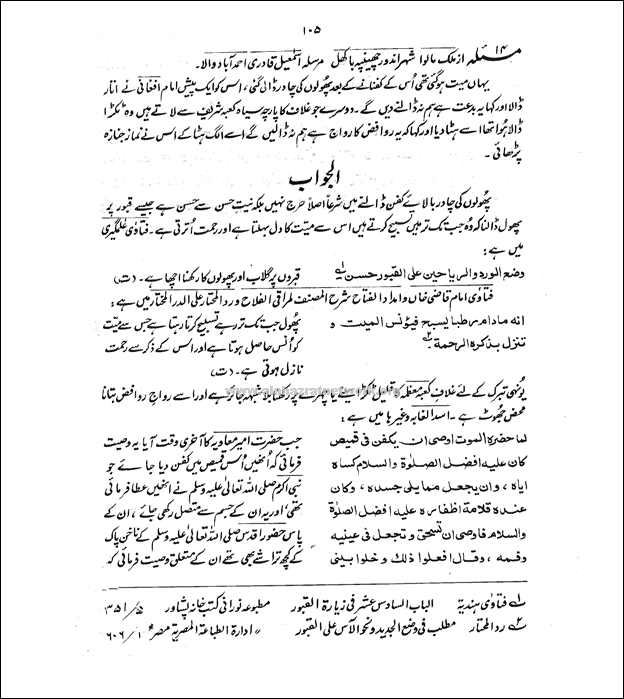 ۱۰۵
مسئلہ ۱۴ از ملک مالوا شہر اندور چھیپہ باکھل مرسلہ اسمٰعیل قادری احمد آباد والا۔
یہاں میت ہوگئی تھی اُس کے کفنانے کے بعد پھُولوں کی چادر ڈالی گئی، اس کو ایک پیش امام افغانی نے اتار
ڈالا اور کہا یہ بدعت ہے ہم نہ ڈالنے دیں گے۔ دوسرے جو غلاف کا پارچہ سیاہ کعبہ شریف سے لاتے ہیں وہ ٹکڑا
ڈالا ہُوا تھا اسے ہٹا دیا اور کہا کہ یہ روافض کا رواج ہے ہم نہ ڈالیں گے اسے الگ ہٹا کے اس نے نماز جنازہ
پڑھائی۔
الجواب
پھُولوں کی چادر بالائے کفن ڈالنے میں شرعاً اصلاً حرج نہیں بلکہ نیتِ حسن سے حسن ہے جیسے قبور پر
پھول ڈالنا کہ وُہ جب تک تر ہیں تسبیح کرتے ہیں اس سے میّت کا دل بہلتا ہے اور رحمت اُترتی ہے۔ فتاوٰی عٰلمگیری
میں ہے:
وضع الورد والریاحین علی القبور حسن۱؎ قبروں پر گلاب اور پھولوں کا رکھنا اچھا ہے۔ (ت)
فتاوٰی امام قاضی خاں و امداد الفتاح شرح المصنف لمراقی الفلاح و رد المحتار علی الدر المختار میں ہے:
انہ مادام رطبا یسبح فیؤنس المیت و
تنزل بذکرہ الرحمۃ۲؎
پھُول جب تک تر رہے تسبیح کرتا رہتا ہے جس سے میّت
کو اُنس حاصل ہوتا ہے اور اس کے ذکر سے رحمت
نازل ہوتی ہے۔ (ت)
www.alahazratnetwork.org
یُونہی تبرک کے لئے غلافِ کعبہ معظمہ کا قلیل ٹکڑا سینے یا چہرے پر رکھنا بلاشبہہ جائز ہے اور اسے رواجِ روافض بتانا
محض جھُوٹ ہے۔ اسد الغابہ وغیرہا میں ہے:
لما حضرہ الموت اوصی ان یکفن فی قمیص
کان علیہ افضل الصلٰوۃ والسلام کساہ
ایاہ، وان یجعل ممایلی جسدہ، وکان
عندہ قلامۃ اظفارہ علیہ افضل الصلٰوۃ
والسلام فاوصی ان تسحق وتجعل فی عینیہ
وفمہ، وقال افعلوا ذلك وخلوا بینی
جب حضرت امیر معاویہ کا آخری وقت آیا یہ وصیت
فرمائی کہ اُنھیں اُس قمیص میں کفن دیا جائے جو
نبی اکرم صلی اللہ تعالیٰ علیہ وسلم نے انھیں عطا فرمائی
تھی، اور یہ ان کے جسم سے متصل رکھی جائے، ان کے
پاس حضور اقدس صلی اللہ تعالیٰ علیہ وسلم کے ناخن پاک
کے کچھ تراشے بھی تھے ان کے متعلق وصیت فرمائی کہ
۱؎ فتاوٰی ہندیۃ الباب السادس عشر فی زیارۃ القبور مطبوعہ نورانی کتب خانہ پشاور ۵/ ۳۵۱
۲؎ رد المحتار مطلب فی وضع الجدید ونحو الآس علی القبور ״ ادارۃ الطباعۃ المصریۃ مصر ۱/ ۶۰۶